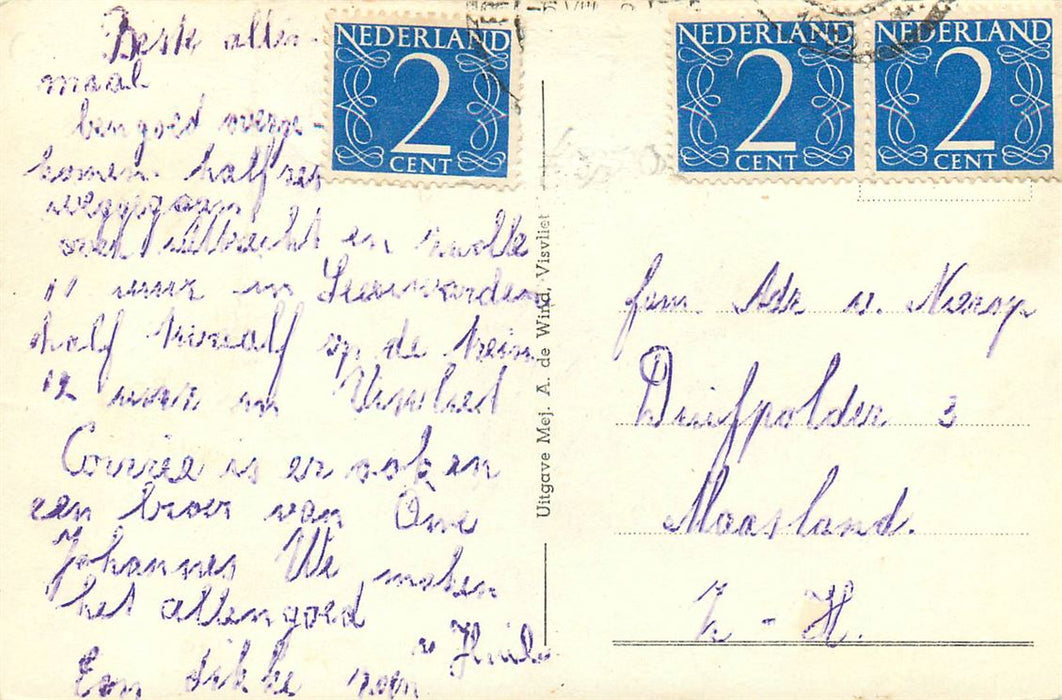 Beste allen-
maal
ben goed overge-
komen. half zes
weggegaan
over Utrecht en Zwolle
11 uur in Leeuwarden
half twaalf op de trein
12 uur in Visvliet
Corrie is er ook en
een broer van Ome
Johannes We maken
het allen goed
Een dikke zoen
NEDERLAND
2
CENT
NEDERLAND
2
CENT
NEDERLAND
2
CENT
Uitgave Mej. A. de Wind, Visvliet
fam. Adr v. Nierop
Duifpolder 3
Maasland.
Z - H.